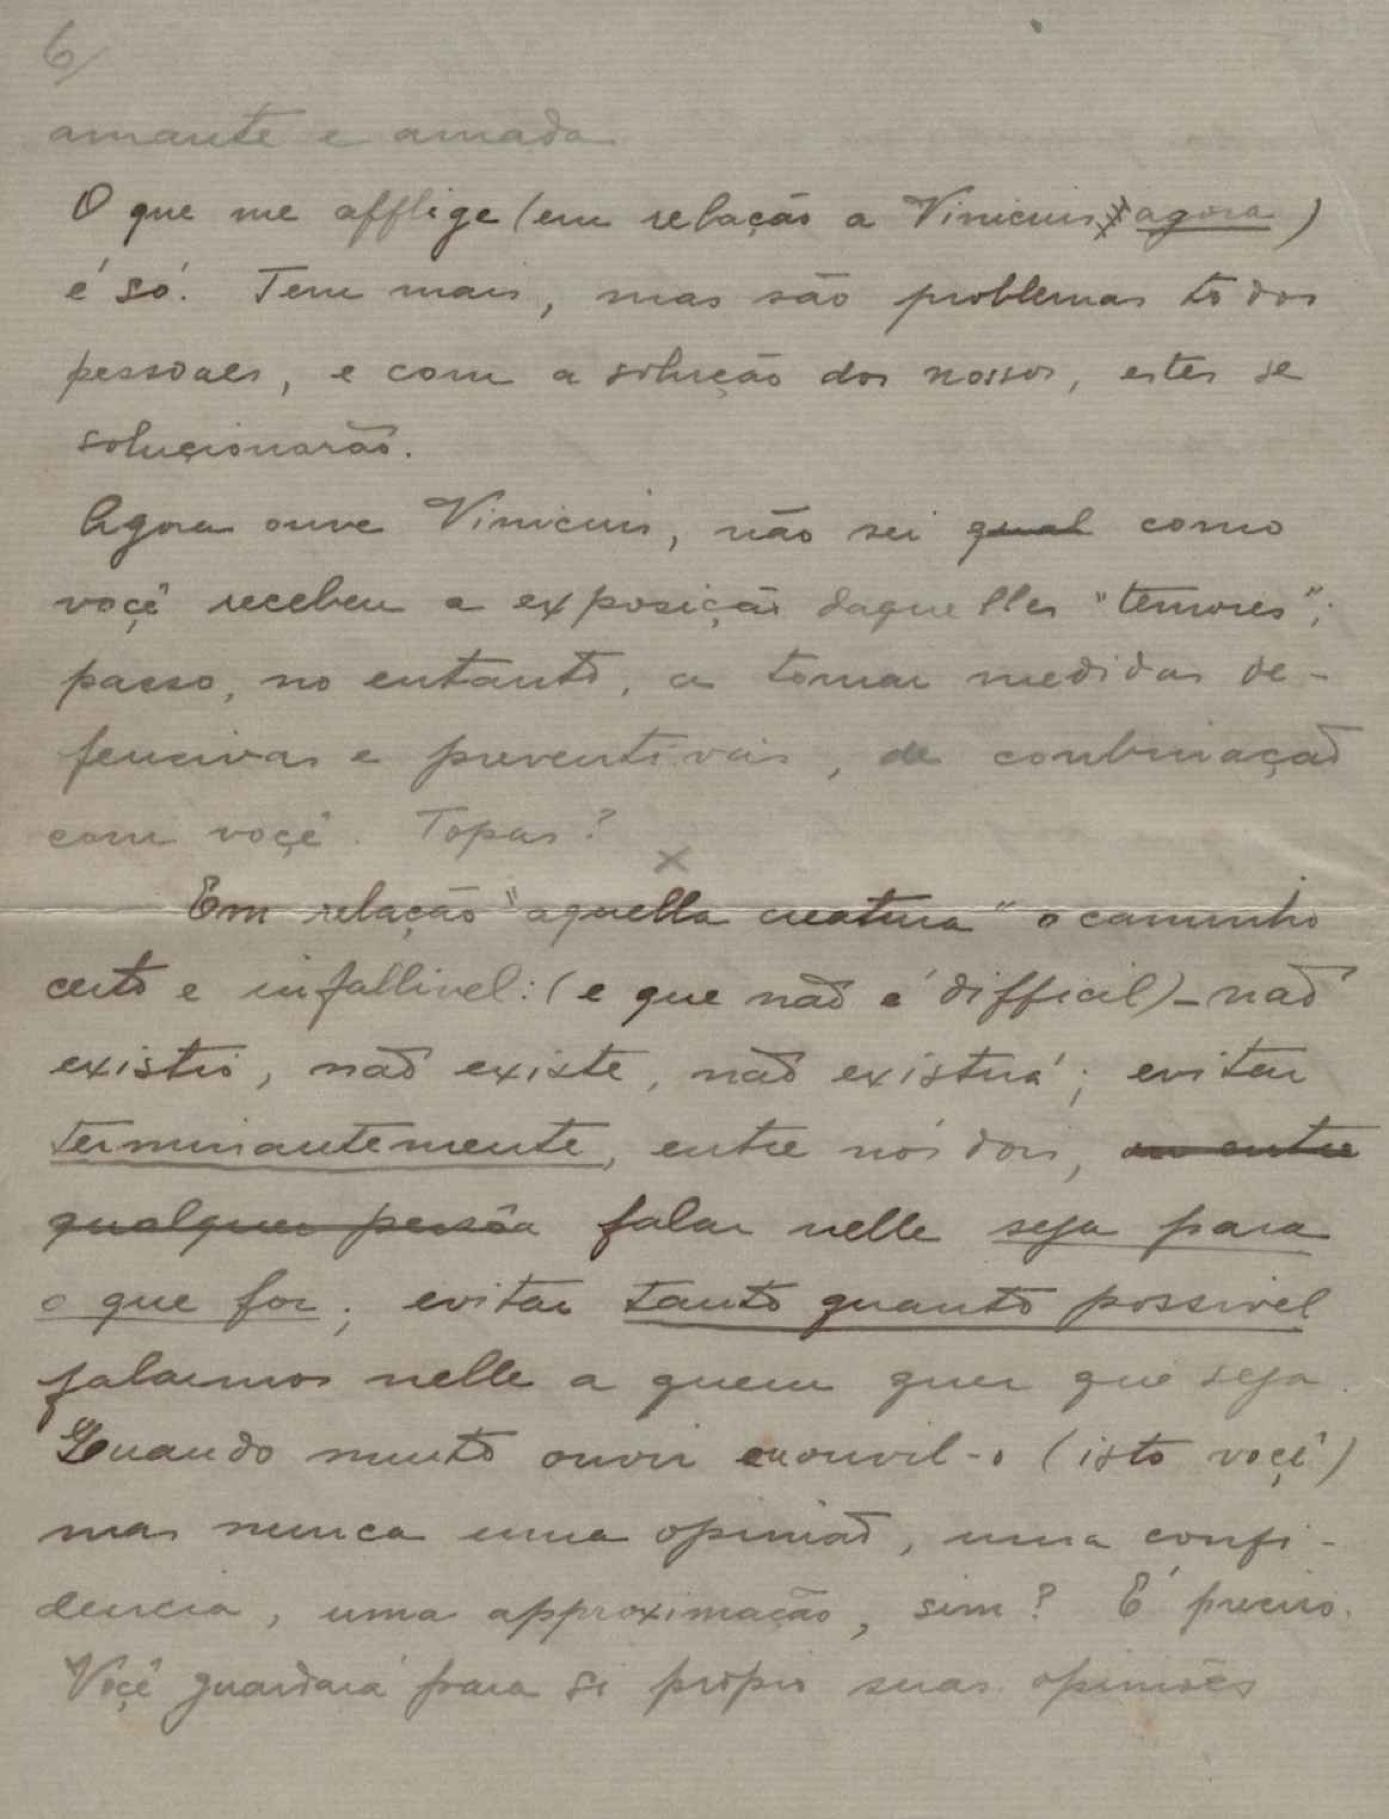 6/
amante e amada
O que me afflige (em relação a Vinicius, agora)
é só. Tem mais, mas são problemas todos
pessoaes, e com a solução dos nossos, estes se
solucionarão.
Agora ouve Vinicius, não sei qual como
voçê recebeu a exposição daquelles "temores";
passo, no entanto, a tomar medidas de-
fencivas e preventivas, de combinação
com voçê. Topas?
x
Em relação "aquella creatura" o caminho
certo e infallivel: (e que não é difficil) - não
existio, não existe, não existirá; evitar
terminantemente, entre nós dois, ou entre
qualquer pessôa falar nelle seja para
o que for; evitar tanto quanto possivel
falarmos nelle a quem quer que seja.
Quando muito ouvir ouvil-o (isto voçê)
mas nunca uma opinião, uma confi-
dencia, uma approximação, sim? É preciso.
Voçê guardará para si proprio suas opiniões